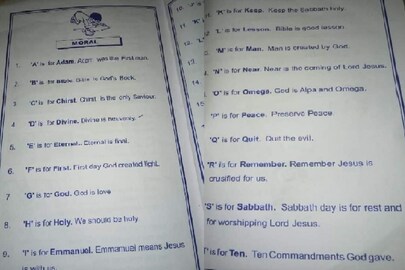 MORAL
1. 'A' is for Adam. Adam was the First man.
2. 'B' is for Bible. Bible is God's Book.
3. 'C' is for Chirst. Chirst is the only Saviour.
4. 'D' is for Divine. Divine is heavenly.
5. 'E' is for Eternal. Eternal is final.
6. 'F' is for First. First day God created light.
7. 'G' is for God. God is love
8. 'H' is for Holy. We should be holy
9. 'I' is for Emmanuel. Emmanuel means Jesus
is with us.
10. 'J'
11. 'K'
12. 'L'
13.
14
15
16
'K' is for Keep. Keep the Sabbath holy.
'L' is for Lesson. Bible is good lesson.
'M' is for Man. Man is created by God.
'N' is for Near. Near is the coming of Lord Jesus.
'O' is for Omega. God is Alpa and Omega.
'P' is for Peace. Preserve Peace
'Q' is for Quit. Quit the evil.
'R' is for Remember. Remember Jesus is
crusified for us.
'S' is for Sabbath. Sabbath day is for rest and
for worshipping Lord Jesus.
is for Ten. Ten Commandments God gave.